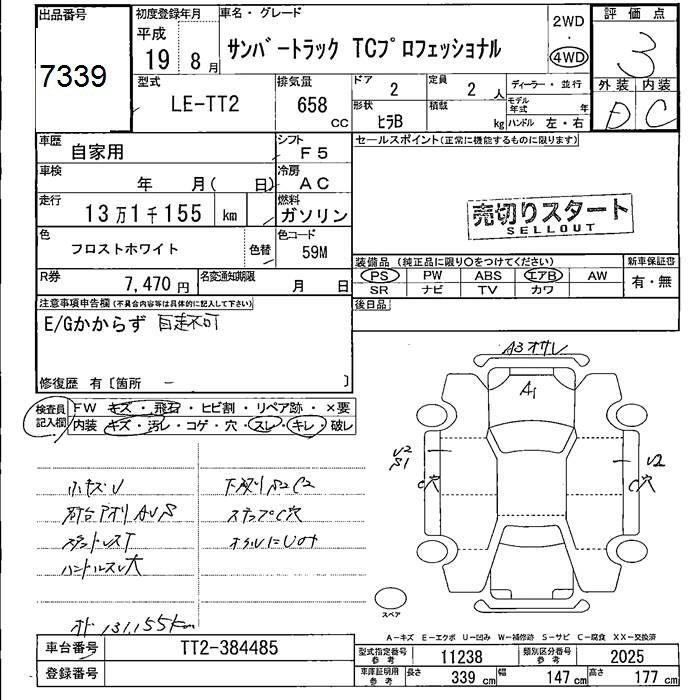 出品番号
7339
初度登録年月
平成
19 8 月
車名・グレード
サンバートラック TCプロフェッショナル
2WD
・
4WD
評価点
3
外装 内装
D C
型式
LE-TT2
排気量
658
CC
ドア
2
定員
2 人
ディーラー・並行
形状
ヒラB
積載
kg
モデル年式 年
ハンドル 左・右
車歴
自家用
シフト
F5
車検
年 月( 日)
冷房
AC
走行
13万1千155 km
燃料
ガソリン
色
フロストホワイト
色替
色コード
59M
R券
7,470 円
名変通知期限
月 日
セールスポイント(正常に機能するものに限ります)
売切りスタート
SELLOUT
装備品 (純正品に限り○をつけてください)
新車保証書
PS PW ABS エアB AW
SR ナビ TV カワ
有・無
後日品
注意事項申告欄(不具合内容等は具体的に記入して下さい)
E/Gかからず 自走不可
修復歴 有[箇所 − ]
検査員記入欄
FW キズ・飛石・ヒビ割・リペア跡・×要
内装 キズ・汚レ・コゲ・穴・スレ・キレ・破レ
小キズU
下廻りS2C2
荷台アオリAUS
ステップC穴
ハンドルスレ大
オド131,155km
A3オサレ
A1
U2
S1
C穴
U2
C穴
スペア
A−キズ E−エクボ U−凹み W−補修跡 S−サビ C−腐食 XX−交換済
車台番号
TT2-384485
登録番号
型式指定番号
参考
11238
類別区分番号
参考
2025
車庫証明用
参考
長さ 339 cm 幅 147 cm 高さ 177 cm